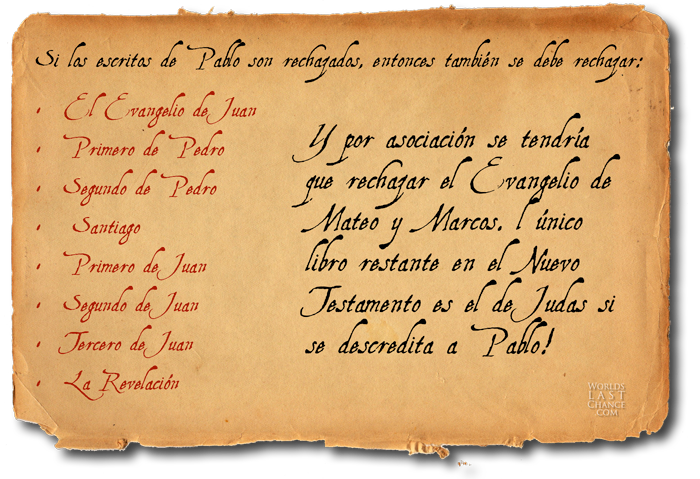 Si los escritos de Pablo son rechazados, entonces también se debe rechazar:
• El Evangelio de Juan
• Primero de Pedro
• Segundo de Pedro
• Santiago
• Primero de Juan
• Segundo de Juan
• Tercero de Juan
• La Revelación
Y por asociación se tendría
que rechazar el Evangelio de
Mateo y Marcos. l único
libro restante en el Nuevo
Testamento es el de Judas si
se descredita a Pablo!
WORLDS
LAST
CHANCE
.COM